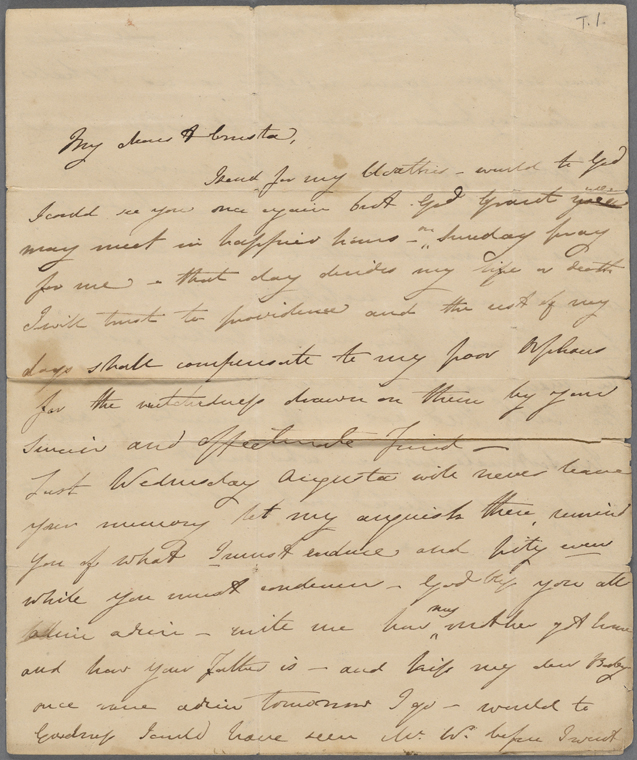 T.1.
My dear Augusta,
I send for my Cloathes - would to God
I could see you once again but God Grant we
may meet in happier hours - on Sunday pray
for me - that day decides my life or death
I will trust to providence and the rest of my
days shall compensate to my poor Orphans
for the wretchedness drawn on them by your
sincere and affectionate Friend -
Last Wednesday Augusta will never leave
your memory let my anguish then remind
you of what I must endure and pity even
while you must condemn - God bless you all
adieu adieu - write me how my mother got home
and how your Father is - and kiss my dear Baby
once more adieu tomorrow I go - would to
Goodness I could have seen Mr. W. before I went